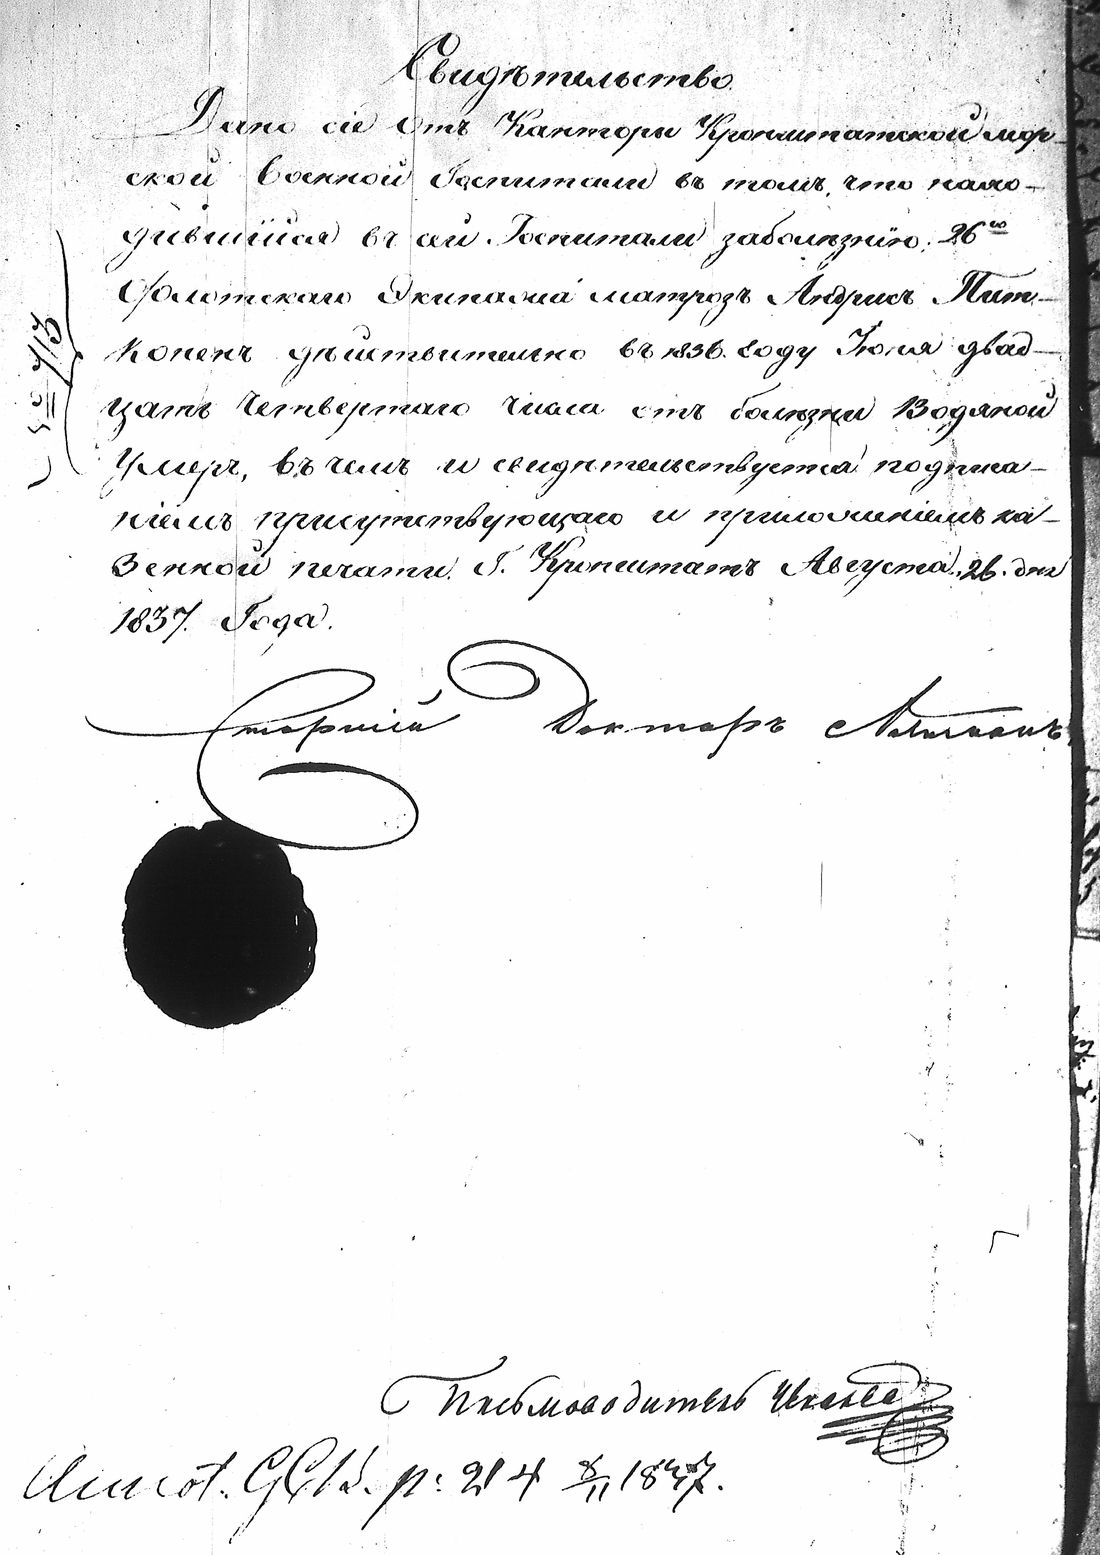 Свидѣтельство.
Дано сіе отъ Канторы Кронштатской мор-
ской военной Госпитали въ томъ, что нахо-
дившійся въ сей Госпитали заболѣзнію, 26го
Флотскаго Экипажа матрозъ Андрисъ Пит-
коненъ дѣйствительно въ 1836. Году Іюня двад-
цать Четвертаго числа отъ болѣзни Водяной
Умеръ, въ чемъ и свидѣтельствуется подписа-
ніемъ присутствующаго и приложеніемъ ка-
зенной печати. Г. Кронштатъ Августа 26. дня
1837. Года.
Старшій Докторъ
Письмоводитель
p: 214 8/11 1837.